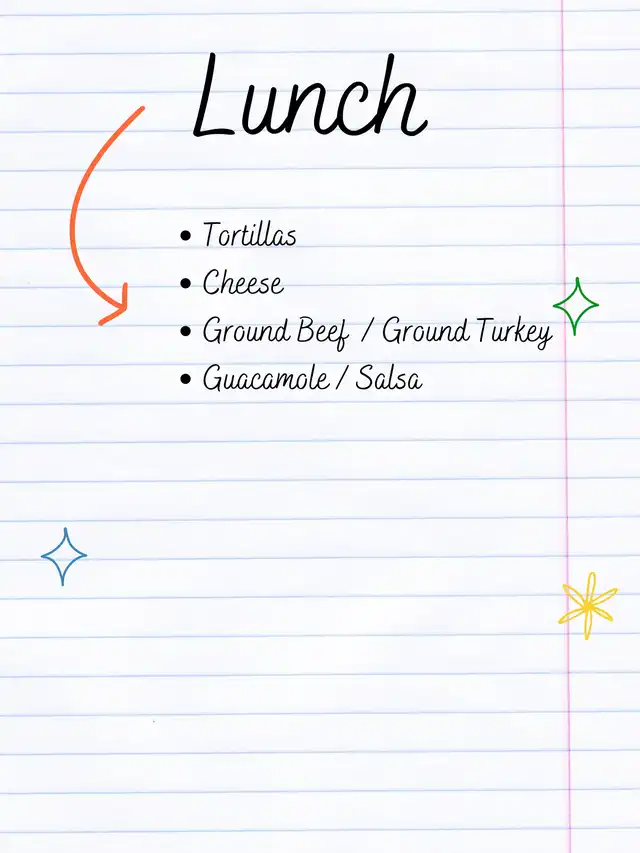 Lunch
• Tortillas
• Cheese
• Ground Beef / Ground Turkey
• Guacamole / Salsa